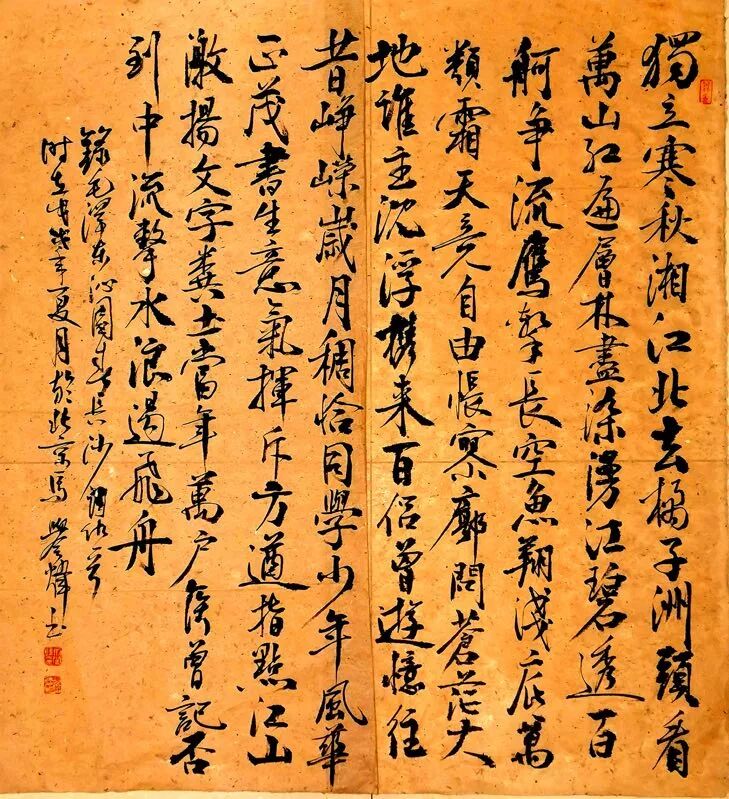 獨立寒秋湘江北去橘子洲頭看
萬山紅遍層林盡染漫江碧透百
舸争流鷹擊長空魚翔淺底萬
類霜天竞自由悵寥廓問蒼茫大
地誰主沈浮携来百侣曾遊憶往
昔崢嶸歲月稠恰同學少年風華
正茂書生意氣揮斥方遒指點江山
激揚文字糞土當年萬户侯曾記否
到中流擊水浪遏飛舟
錄毛澤东沁園春長沙
時在戊戌年夏月於北京馬譽煒书